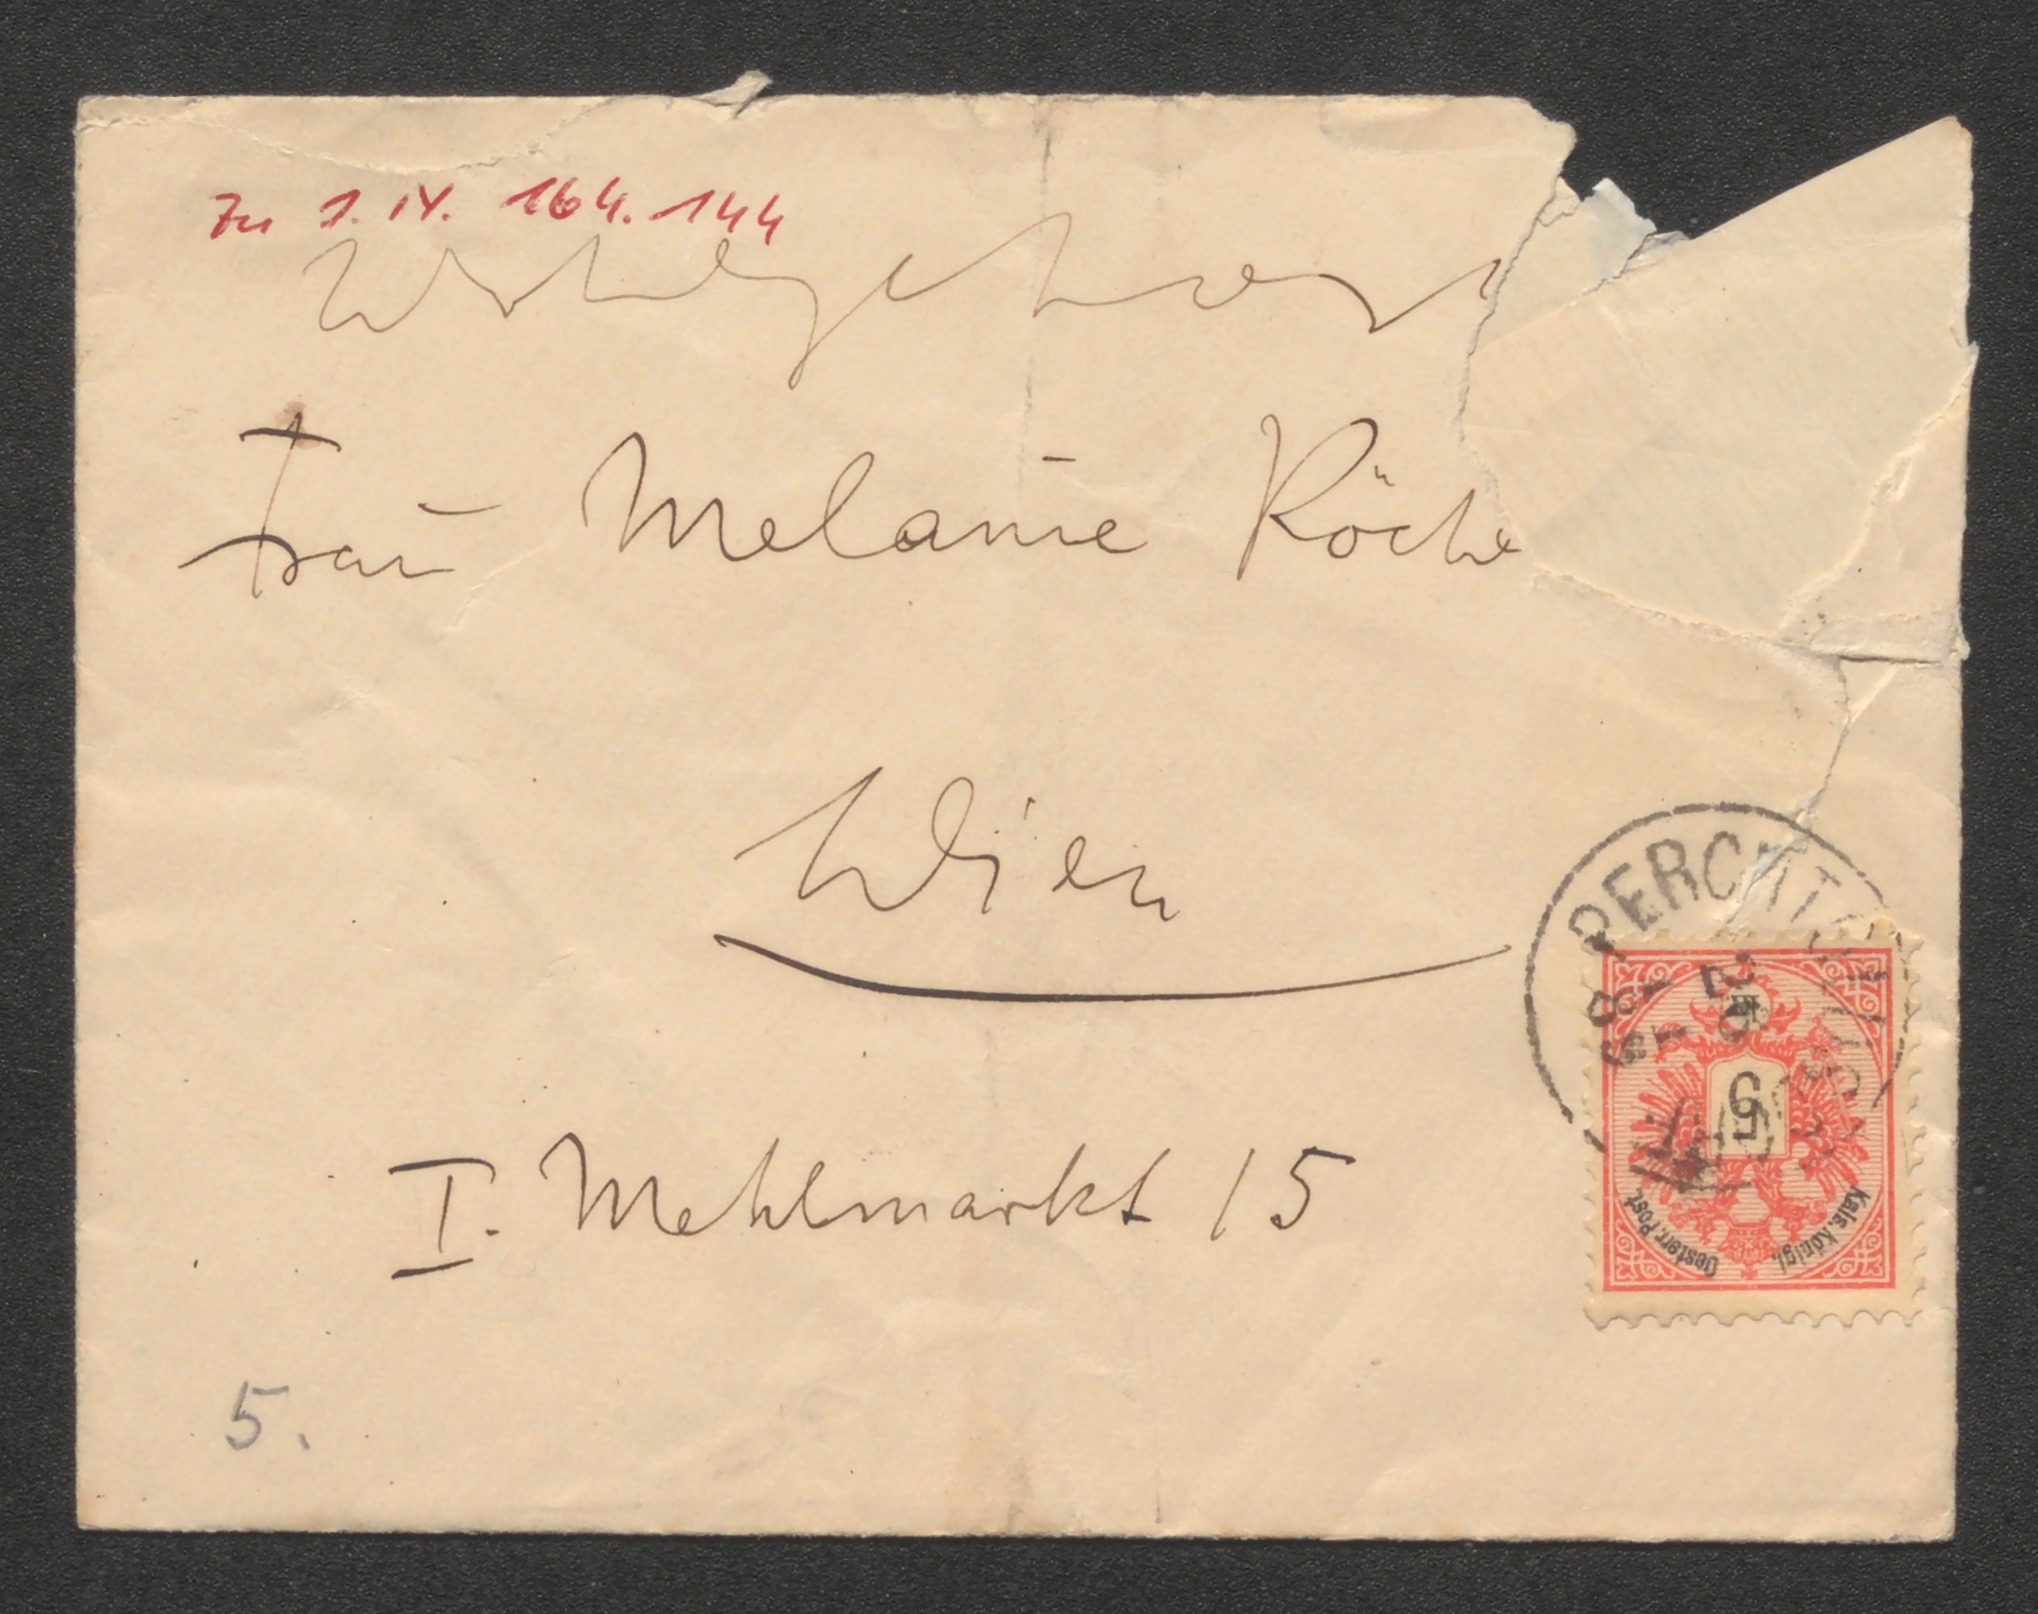 Zu I.N. 164.144
Wohlgebor
Frau Melanie Köche
Wien
I. Mehlmarkt 15
5.
PERCHTOL
5
Kais. Königl.
Oesterr. Post